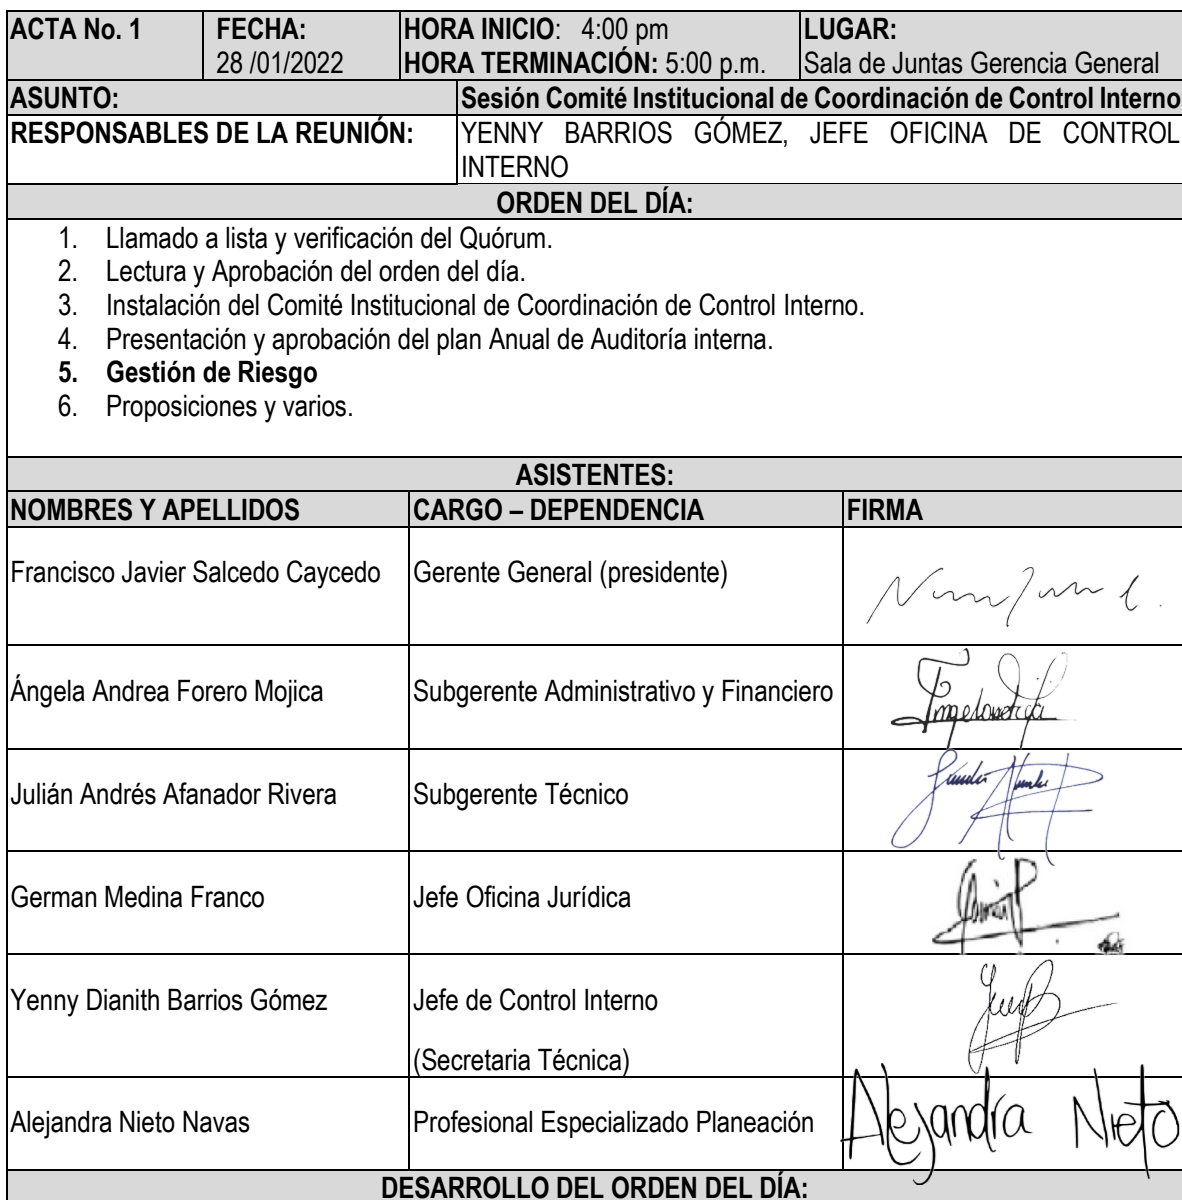 ACTA No. 1 FECHA: HORA INICIO: 4:00 pm LUGAR:
28 /01/2022 HORA TERMINACIÓN: 5:00 p.m. Sala de Juntas Gerencia General
ASUNTO: Sesión Comité Institucional de Coordinación de Control Interno
RESPONSABLES DE LA REUNIÓN: YENNY BARRIOS GÓMEZ, JEFE OFICINA DE CONTROL
INTERNO
ORDEN DEL DÍA:
1. Llamado a lista y verificación del Quórum.
2. Lectura y Aprobación del orden del día.
3. Instalación del Comité Institucional de Coordinación de Control Interno.
4. Presentación y aprobación del plan Anual de Auditoría interna.
5. Gestión de Riesgo
6. Proposiciones y varios.
ASISTENTES:
NOMBRES Y APELLIDOS CARGO – DEPENDENCIA FIRMA
Francisco Javier Salcedo Caycedo Gerente General (presidente)
Ángela Andrea Forero Mojica Subgerente Administrativo y Financiero
Julián Andrés Afanador Rivera Subgerente Técnico
German Medina Franco Jefe Oficina Jurídica
Yenny Dianith Barrios Gómez Jefe de Control Interno
(Secretaria Técnica)
Alejandra Nieto Navas Profesional Especializado Planeación Alejandra Nieto
DESARROLLO DEL ORDEN DEL DÍA: